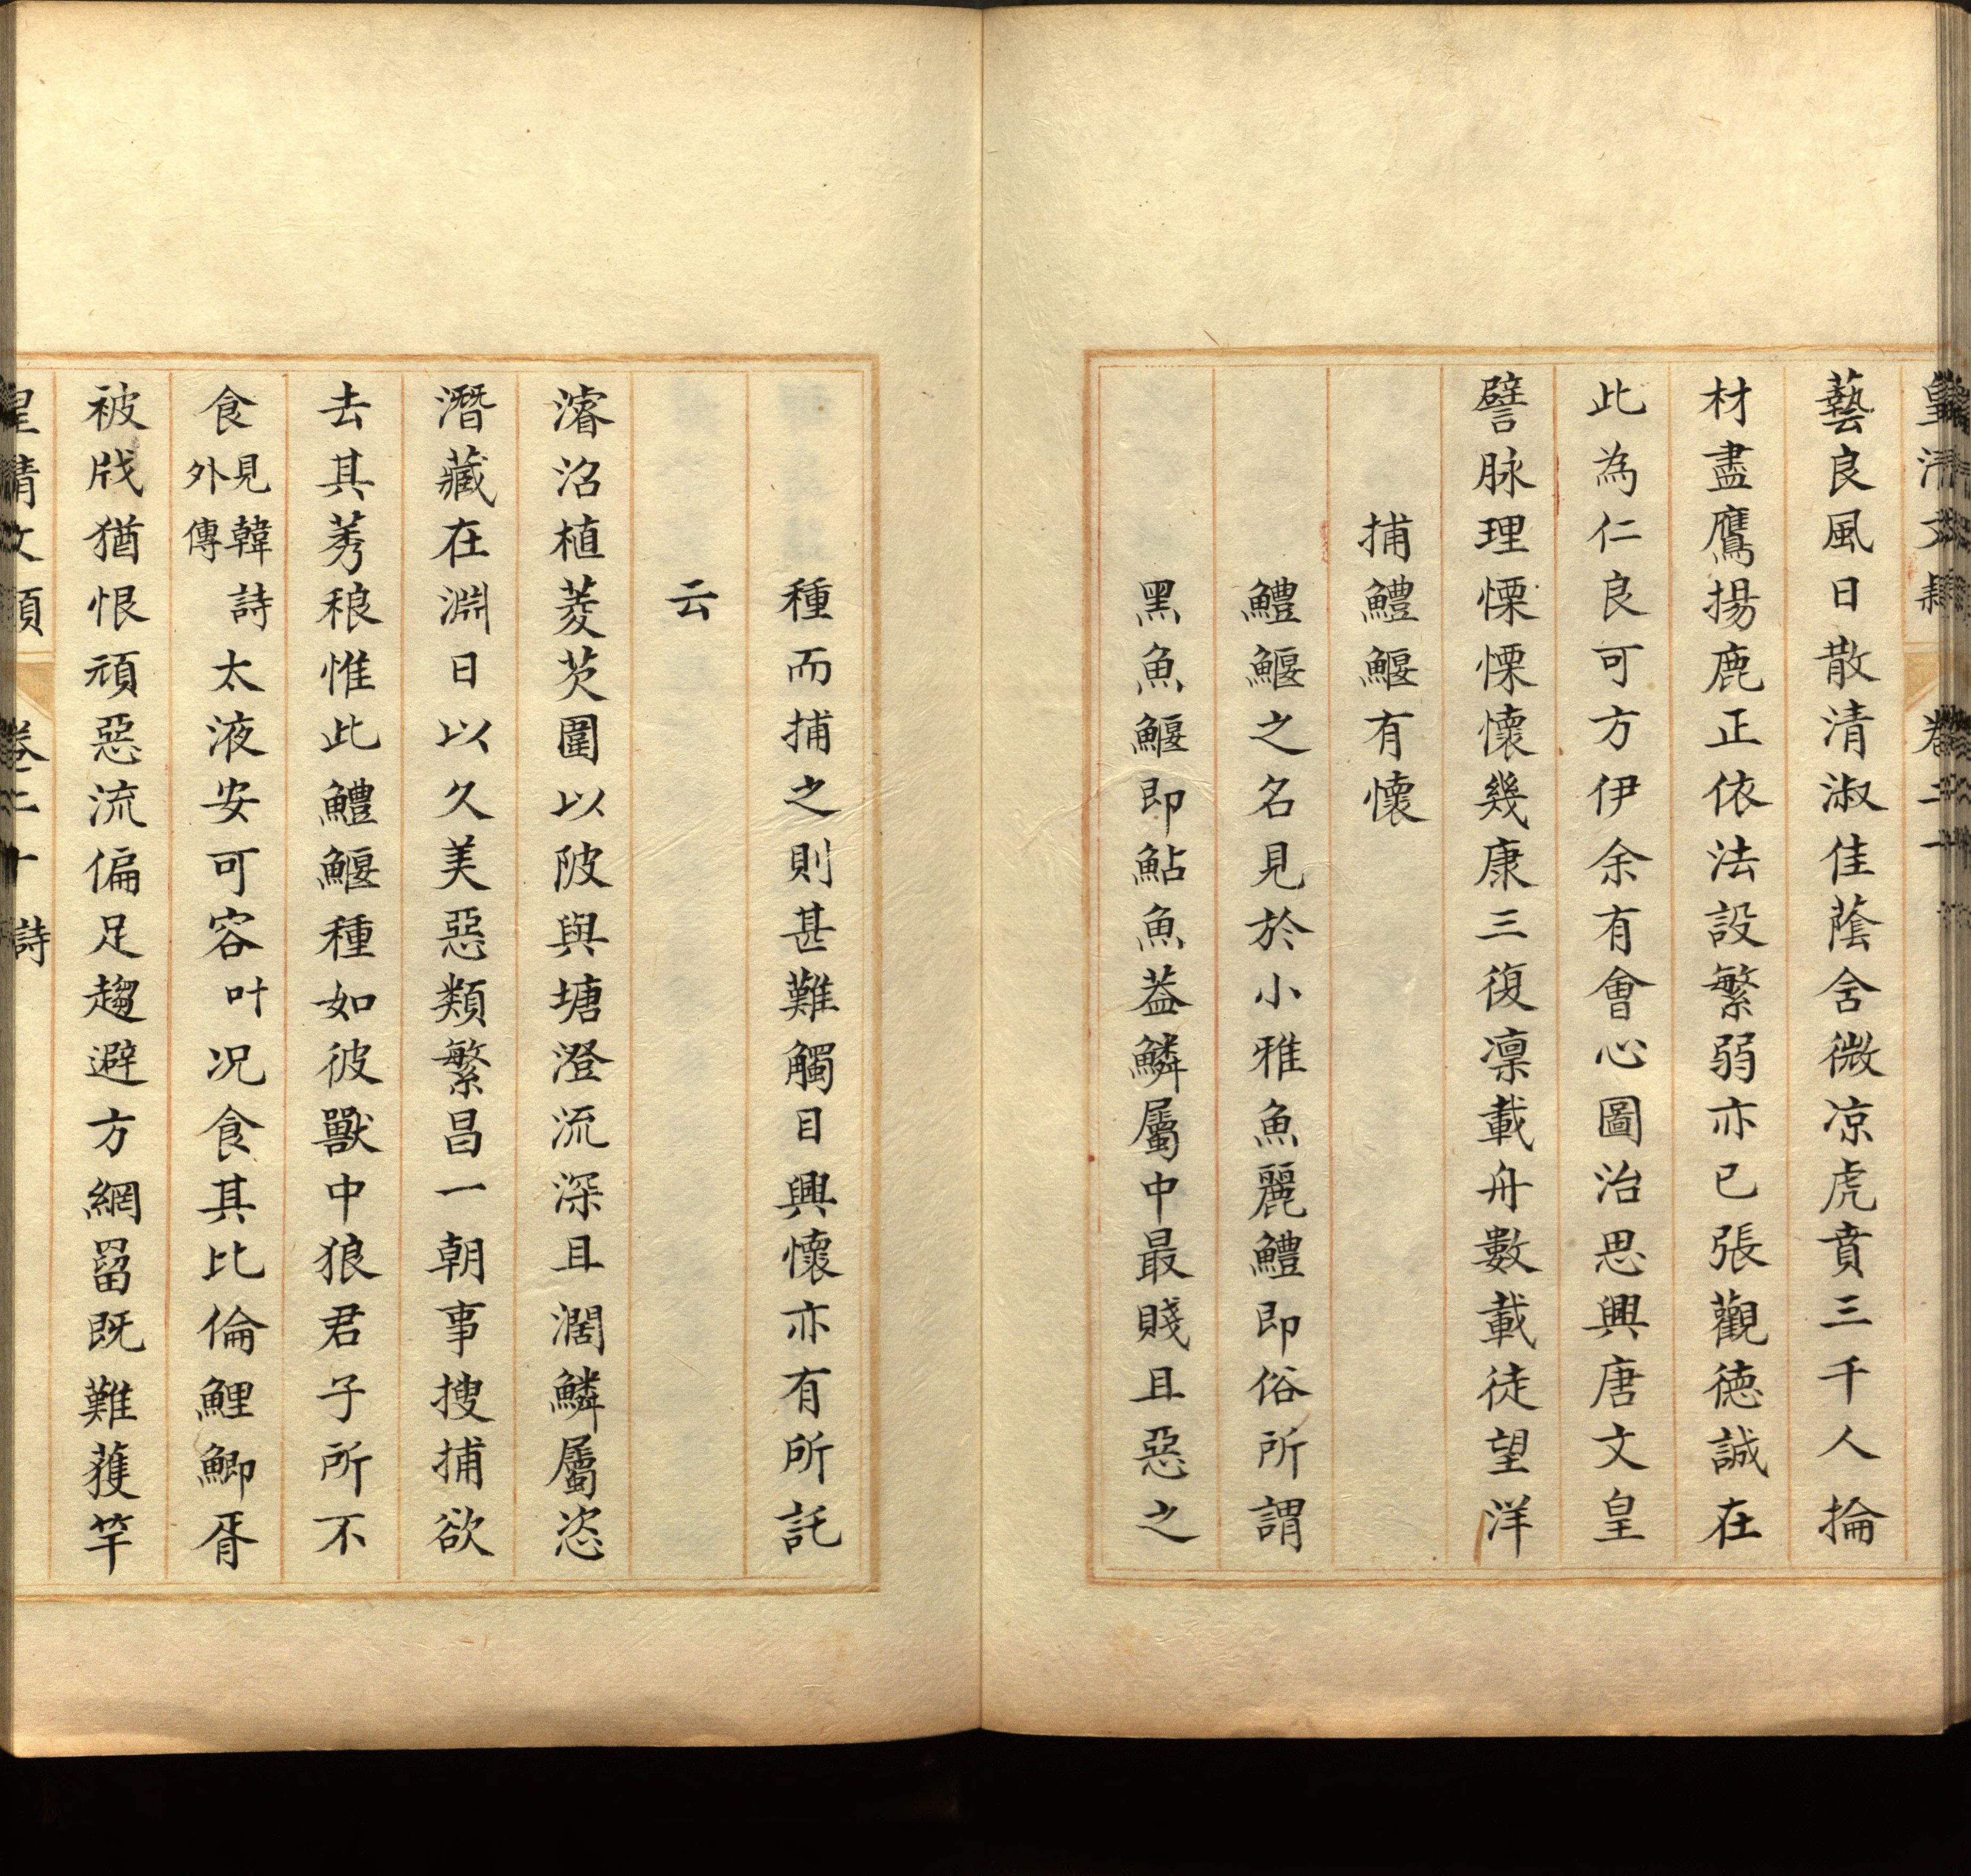 皇清文穎 卷二十
藝良風日散清淑佳蔭含微凉虎賁三千人掄
材盡鷹揚鹿正依法設繁弱亦已張觀德誠在
此為仁良可方伊余有會心圖治思興唐文皇
譬脉理慄慄懷幾康三復凛載舟數載徒望洋
捕鱧鰋有懷
鱧鰋之名見於小雅魚麗鱧即俗所謂
黑魚鰋即鮎魚葢鱗屬中最賤且惡之
種而捕之則甚難觸目興懷亦有所託
云
濬沼植菱芡圍以陂與塘澄流深且濶鱗屬恣
潛藏在淵日以久美惡類繁昌一朝事搜捕欲
去其莠稂惟此鱧鰋種如彼獸中狼君子所不
食見韓詩外傳太液安可容叶况食其比倫鯉鯽胥
被戕猶恨頑惡流偏足趨避方網罶既難蒦竿
皇清文穎 卷二十 詩